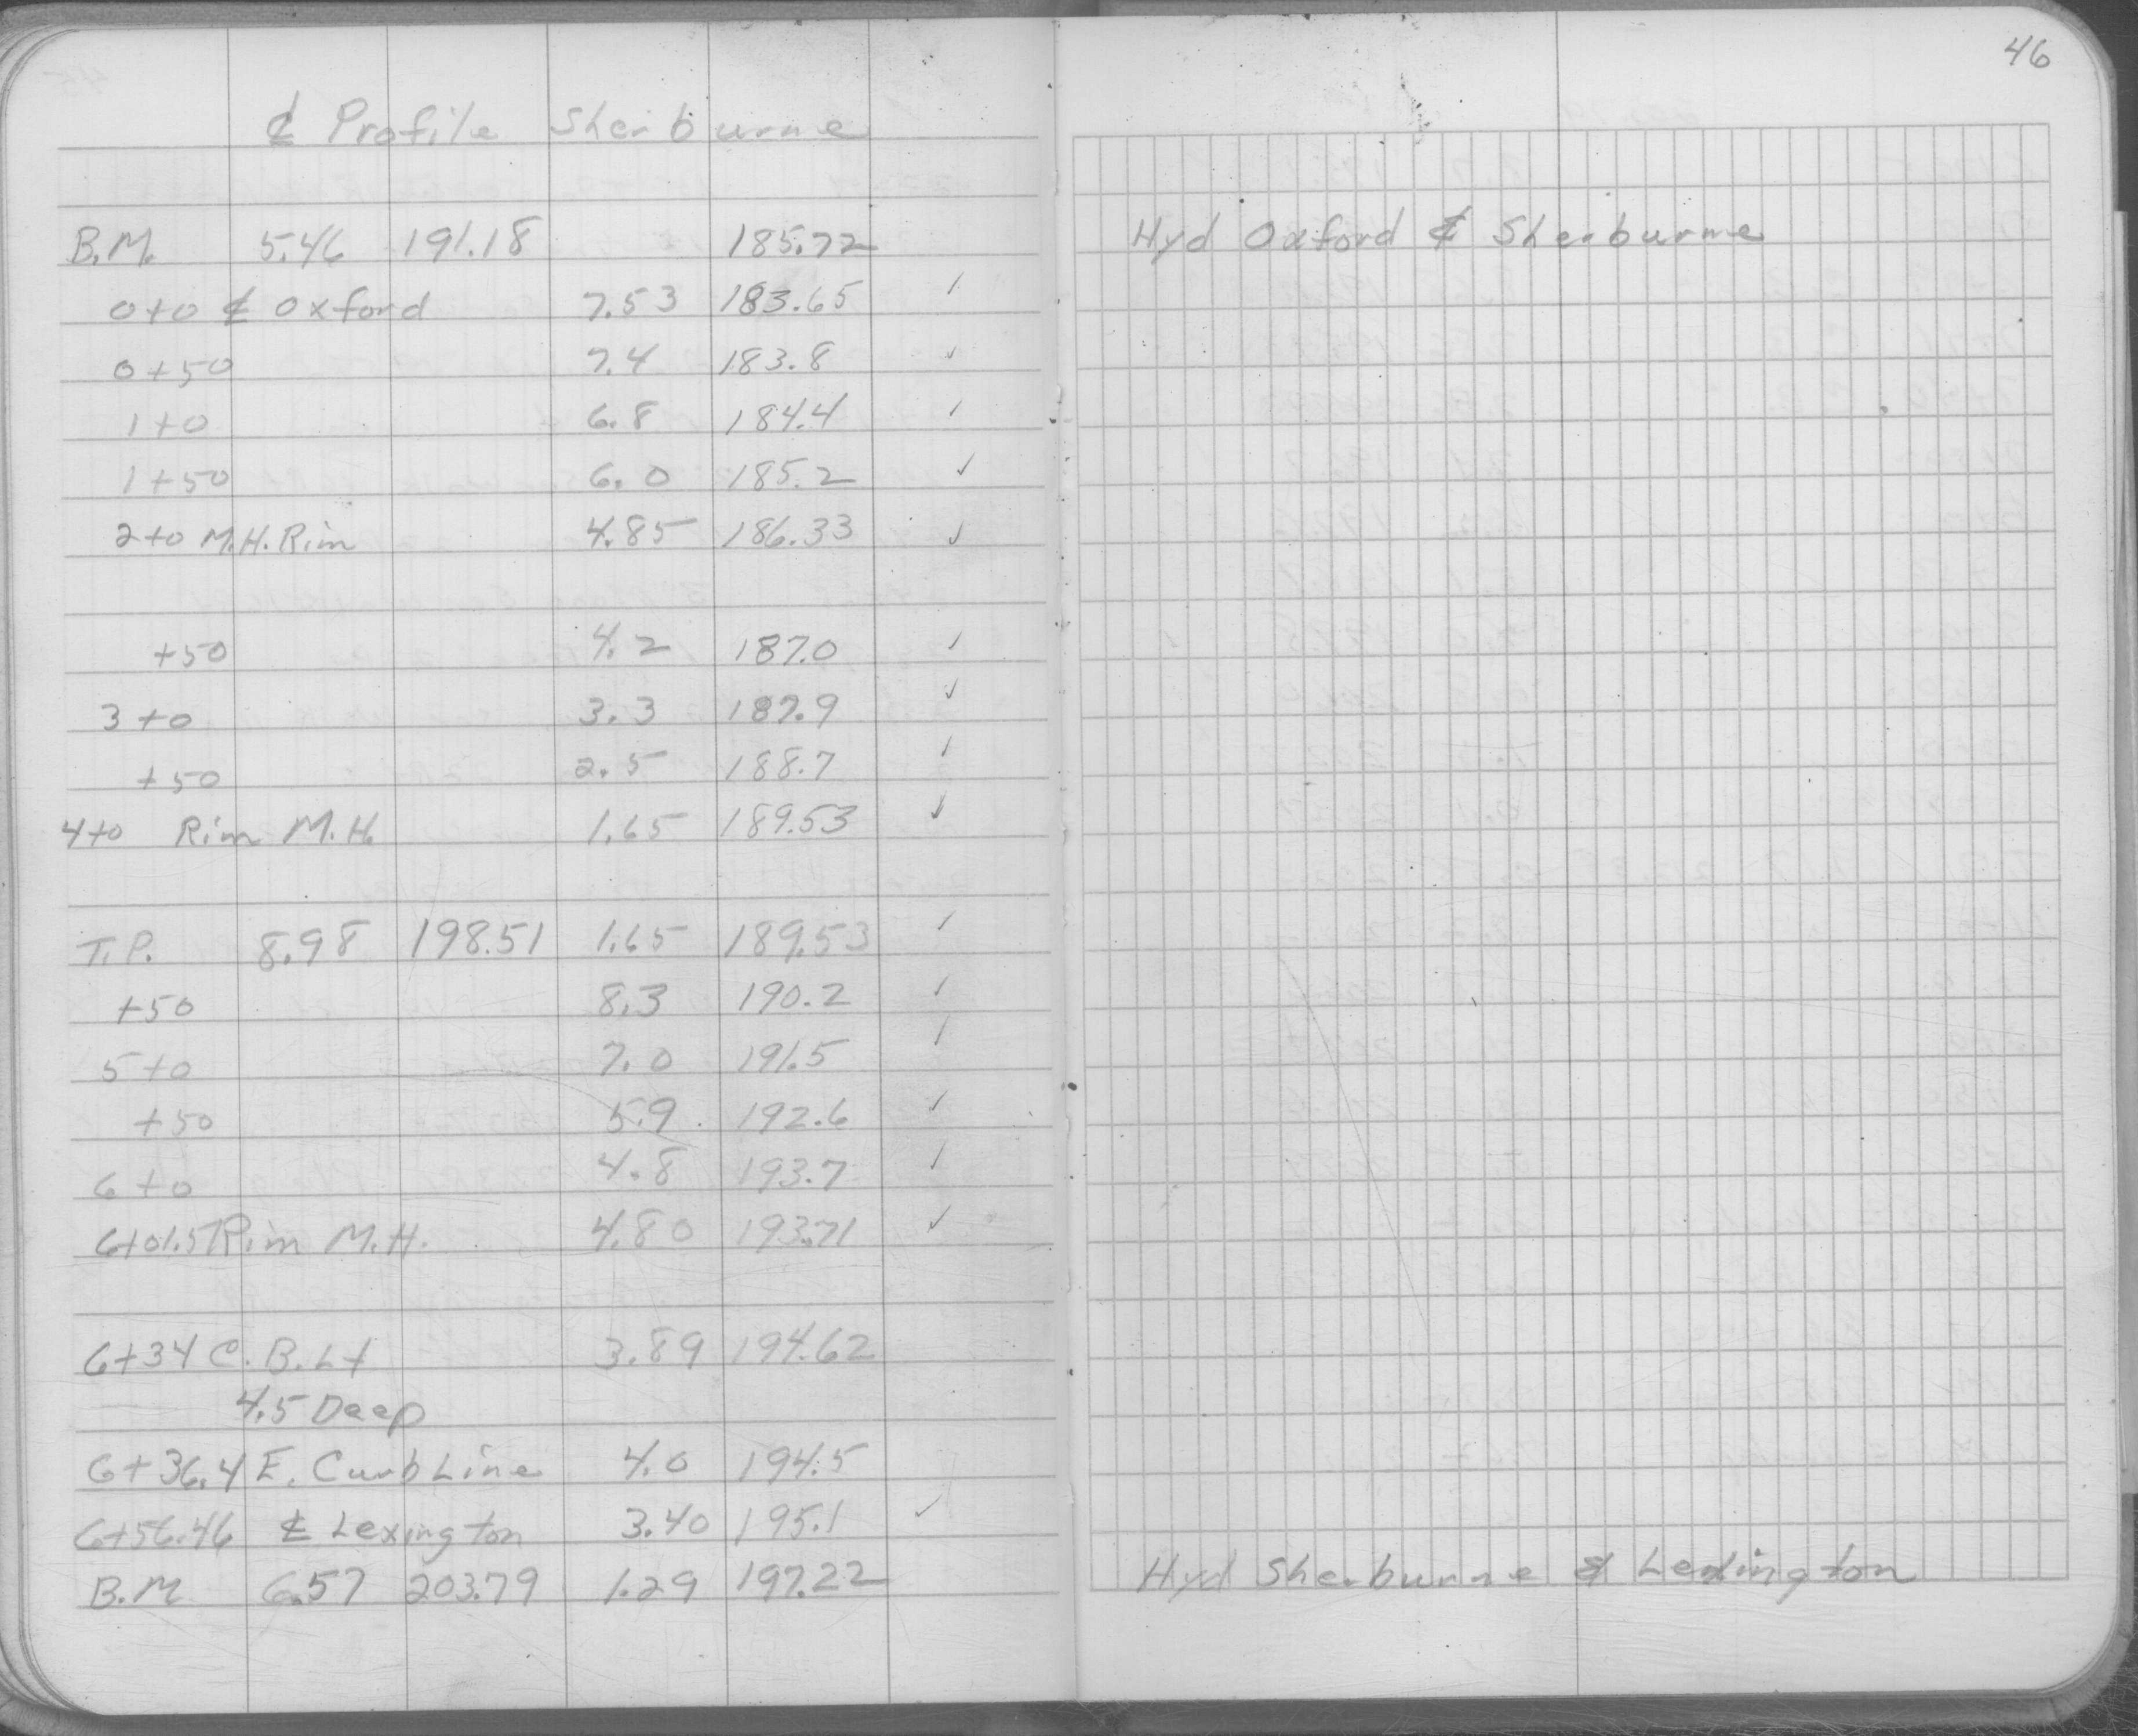 46
₵ Profile Sherburne
B.M. 5.46 191.18 185.72 Hyd Oxford & Sherburne
0+0 ₵ Oxford 7.53 183.65 ✓
0+50 7.4 183.8 ✓
1+0 6.8 184.4 ✓
1+50 6.0 185.2 ✓
2+0 M.H. Rim 4.85 186.33 ✓
+50 4.2 187.0 ✓
3+0 3.3 187.9 ✓
+50 2.5 188.7 ✓
4+0 Rim M.H. 1.65 189.53 ✓
T.P. 8.98 198.51 1.65 189.53 ✓
+50 8.3 190.2 ✓
5+0 7.0 191.5 ✓
+50 5.9 192.6 ✓
6+0 4.8 193.7 ✓
6+01.5 Rim M.H. 4.80 193.71 ✓
6+34 C.B. Lt 3.89 194.62
4.5 Deep
6+36.4 E. Curb Line 4.0 194.5
6+56.46 ₵ Lexington 3.40 195.1 ✓
B.M 6.57 203.79 1.29 197.22 Hyd Sherburne & Lexington